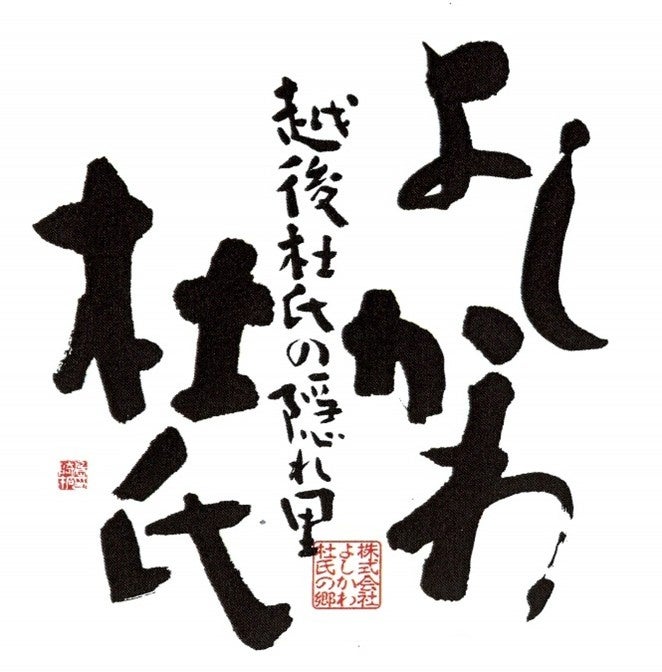 よしかわ
杜氏
越後杜氏の隠れ里
株式会社
よしかわ
杜氏の郷